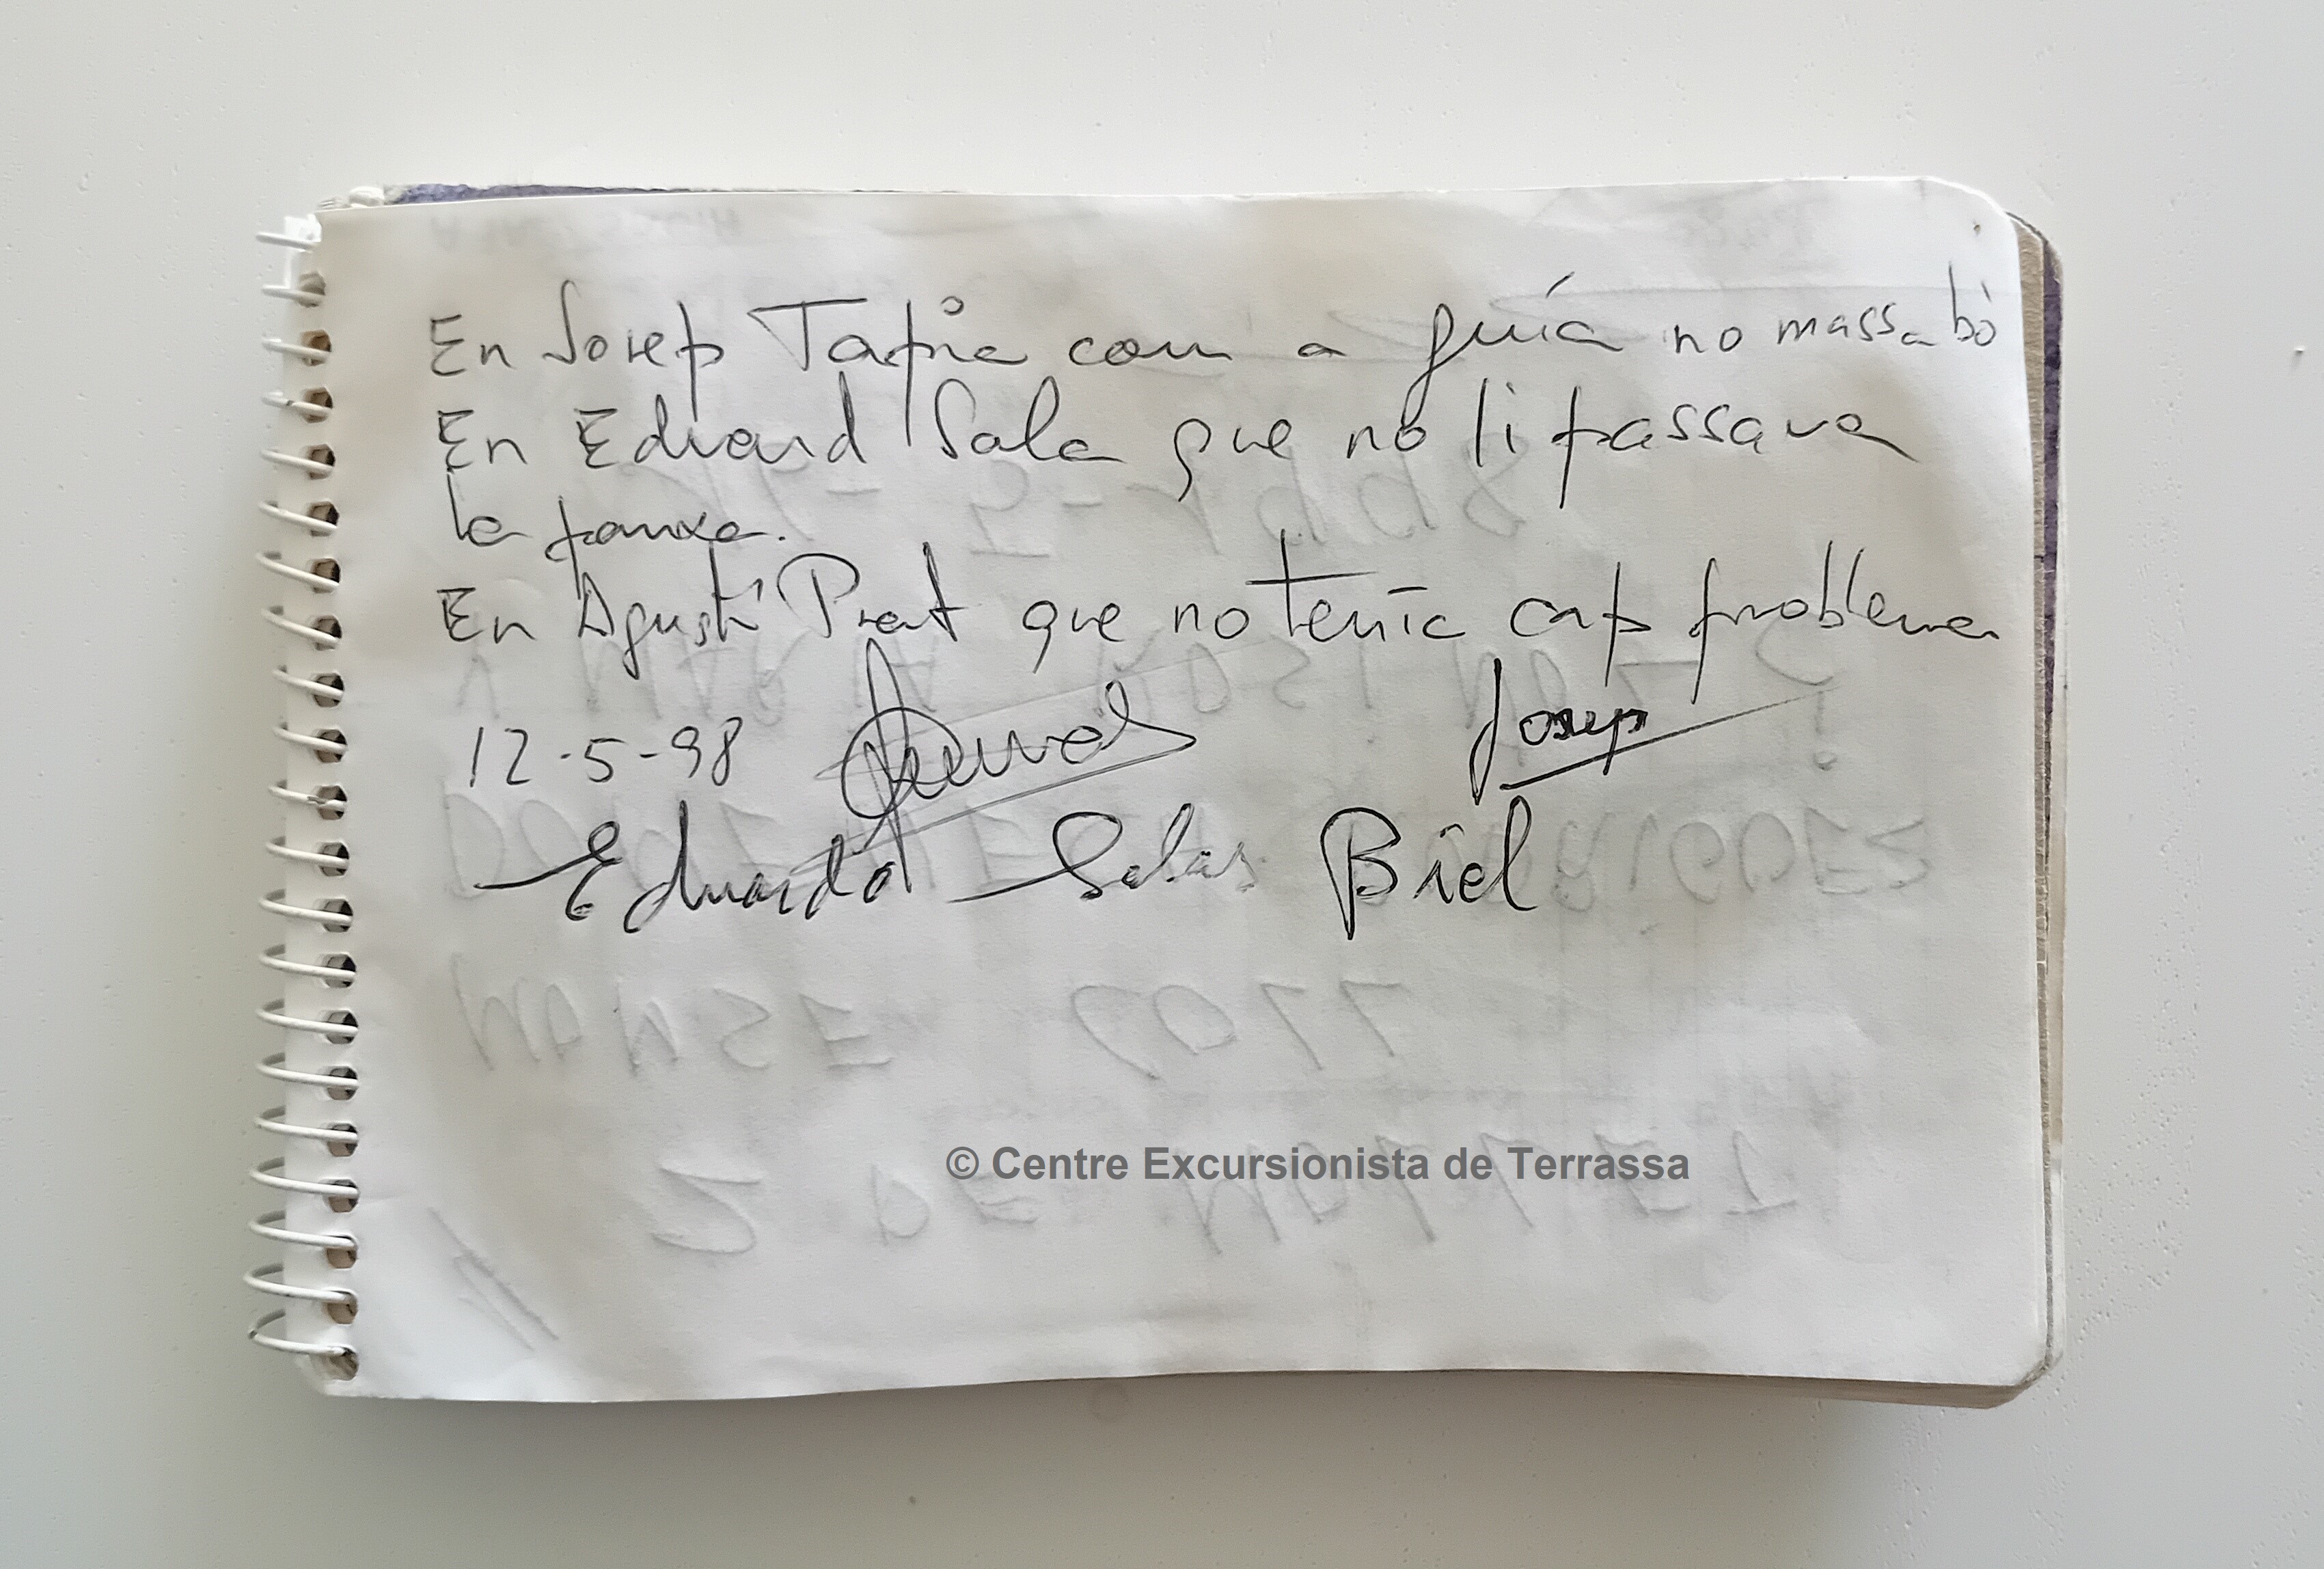 En Josep Tapia com a guía no massa bó
En Eduard Sala que no li passava
la panxa.
En Agustí Prat que no tenía cap problema
12-5-98
Josep
Eduardo Salas Biel
© Centre Excursionista de Terrassa